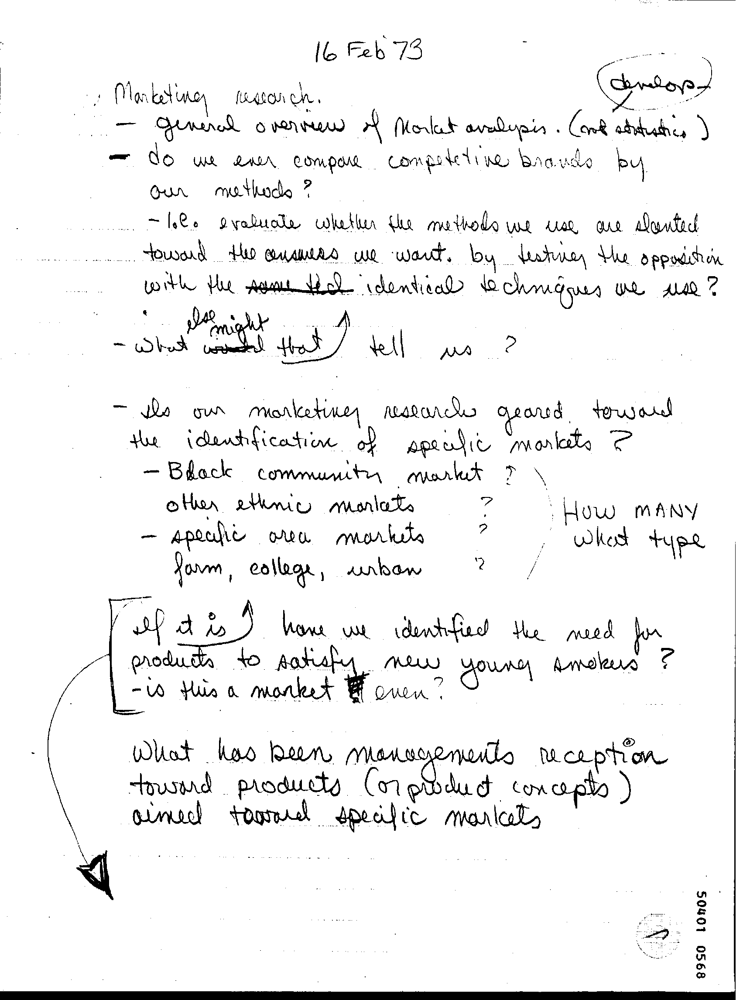 16 Feb '73
develop
Marketing research.
- general overview of Market analysis. (not statistics)
- do we ever compare competetive brands by
our methods?
- I.e. evaluate whether the methods we use are slanted
toward the answers we want. by testing the opposition
with the same tech identical techniques we use?
else might
- What would that tell us ?
- Is our marketing research geared toward
the identification of specific markets ?
- Black community market ?
other ethnic markets ?
- specific area markets ?
farm, college, urban ?
HOW MANY
what type
If it is have we identified the need for
products to satisfy new young smokers ?
- is this a market even?
What has been managements reception
toward products (or product concepts)
aimed toward specific markets
50401 0568